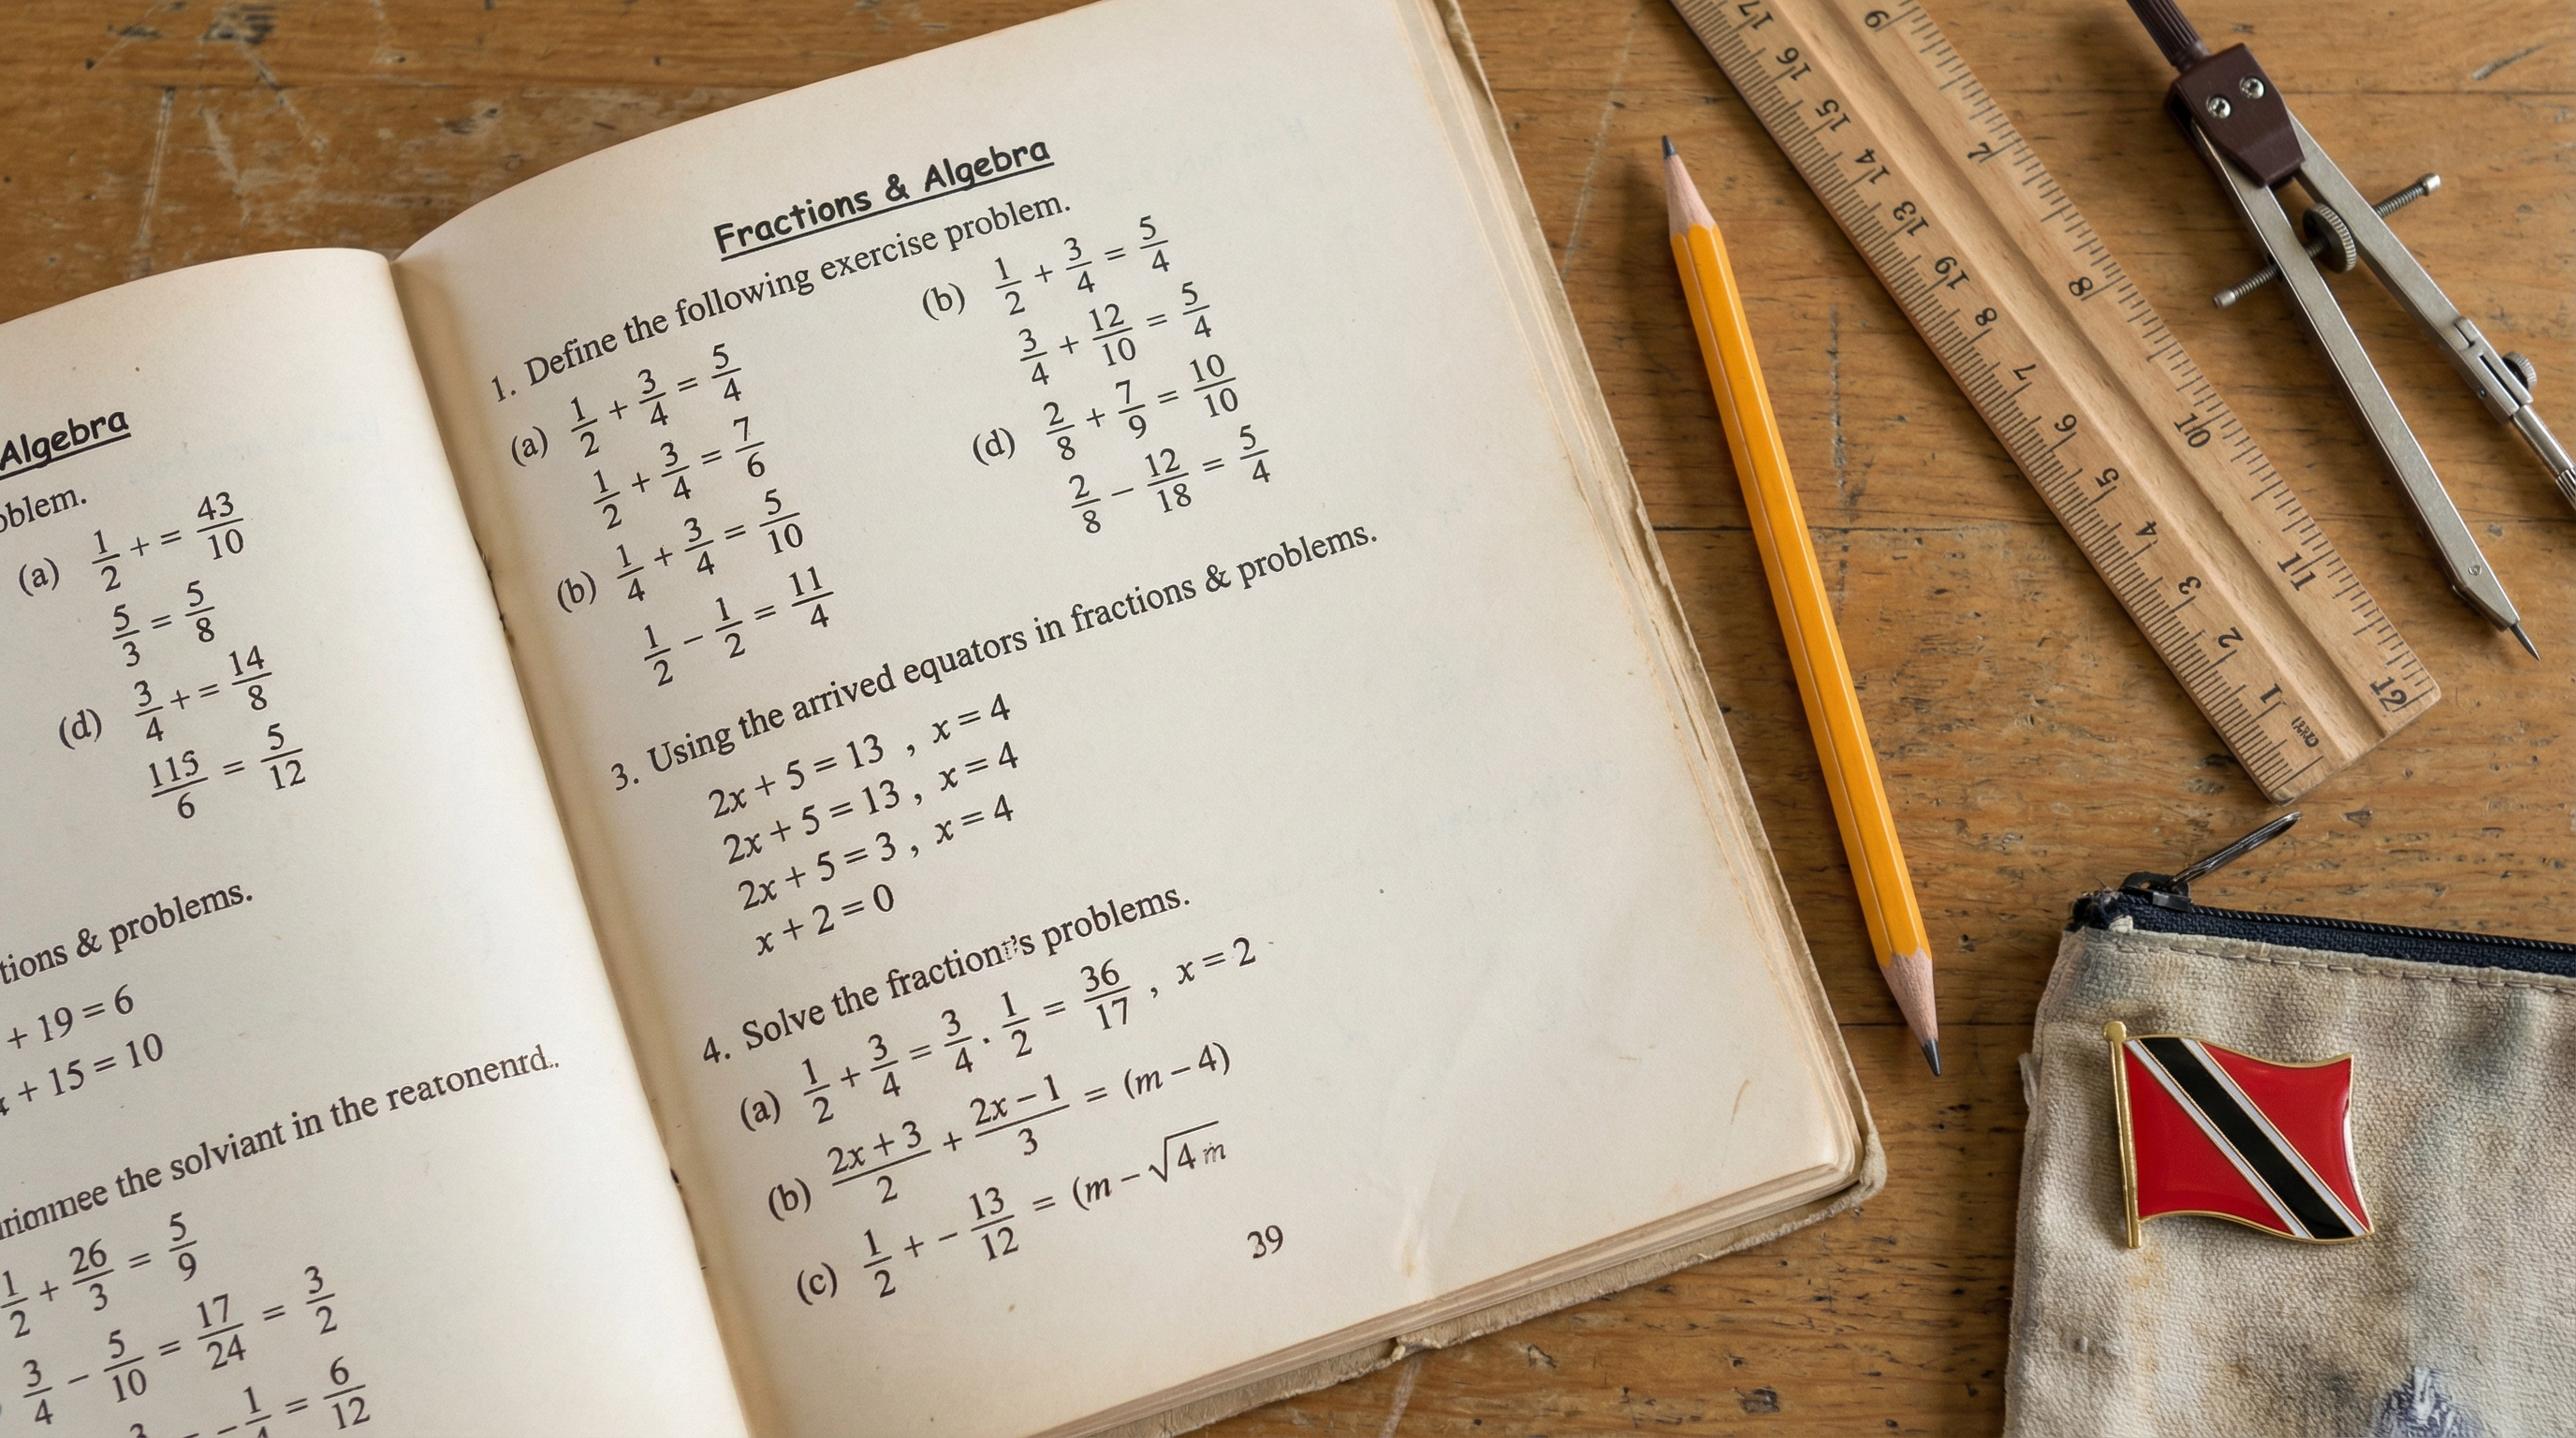 Algebra
oblem.
(a) 1/2 + = 43/10
5/3 = 5/8
(d) 3/4 + = 14/8
115/6 = 5/12
tions & problems.
+ 19 = 6
+ 15 = 10
the solviant in the reatonenrd..
1/2 + 26/3 = 5/9
3/4 − 5/10 = 17/24 = 3/2
− 1/4 = 6/12
Fractions & Algebra
1. Define the following exercise problem.
(a) 1/2 + 3/4 = 5/4
1/2 + 3/4 = 7/6
(b) 1/4 + 3/4 = 5/10
1/2 − 1/2 = 11/4
(b) 1/2 + 3/4 = 5/4
3/4 + 12/10 = 5/4
(d) 2/8 + 7/9 = 10/10
2/8 − 12/18 = 5/4
3. Using the arrived equators in fractions & problems.
2x + 5 = 13 , x = 4
2x + 5 = 13 , x = 4
2x + 5 = 3 , x = 4
x + 2 = 0
4. Solve the problems.
(a) 1/2 + 3/4 = 3/4 · 1/2 = 36/17 , x = 2
(b) (2x + 3)/2 + (2x − 1)/3 = (m − 4)
(c) 1/2 + − 13/12 = (m − √4m
39
17 16 15 14 13 19 8 7 6 5 4 3 2 1
9 7 8 10 11 12